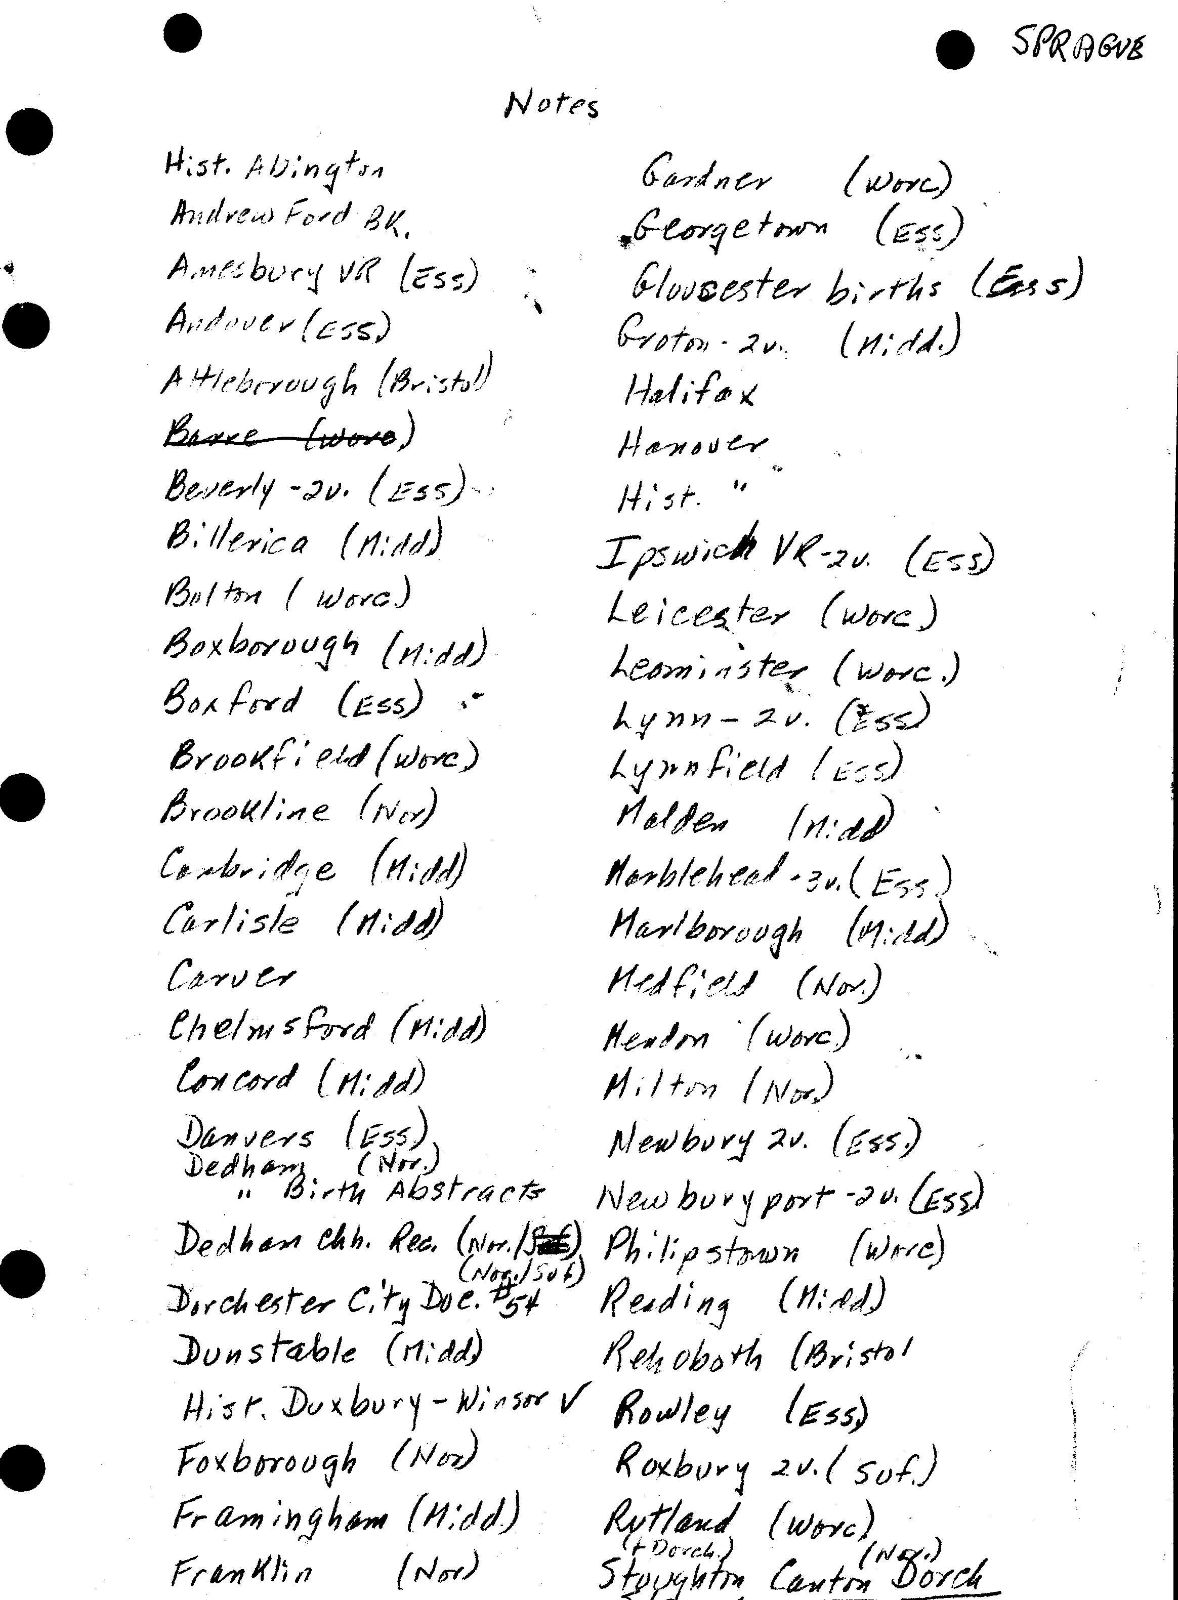 SPRAGUE
Notes
Hist. Abington
Andrew Ford BK.
Amesbury VR (Ess)
Andover (Ess.)
Attleborough (Bristol)
Barre (Worc)
Beverly - 2v. (Ess)
Billerica (Midd)
Bolton (Worc.)
Boxborough (Midd)
Boxford (Ess)
Brookfield (Worc.)
Brookline (Nor)
Cambridge (Midd)
Carlisle (Midd)
Carver
Chelmsford (Midd)
Concord (Midd)
Danvers (Ess)
Dedham (Nor.)
" Birth Abstracts
Dedham Chh. Rec. (Nor./Suf)
(Nor./Suf)
Dorchester City Doc. #54
Dunstable (Midd)
Hist. Duxbury - Winsor √
Foxborough (Nor)
Framingham (Midd.)
Franklin (Nor)
Gardner (Worc)
Georgetown (Ess)
Gloucester births (Ess)
Groton - 2v. (Midd.)
Halifax
Hanover
Hist. "
Ipswich VR - 2v. (Ess)
Leicester (Worc.)
Leominster (Worc.)
Lynn - 2v. (Ess)
Lynnfield (Ess)
Malden (Midd)
Marblehead - 3v. (Ess)
Marlborough (Midd)
Medfield (Nor.)
Mendon (Worc)
Milton (Nor.)
Newbury 2v. (Ess.)
Newburyport - 2v. (Ess)
Philipstown (Worc)
Reading (Midd)
Rehoboth (Bristol
Rowley (Ess)
Roxbury 2v. (Suf.)
Rutland (Worc)
(+ Dorch.) (Nor.)
Stoughton Canton Dorch